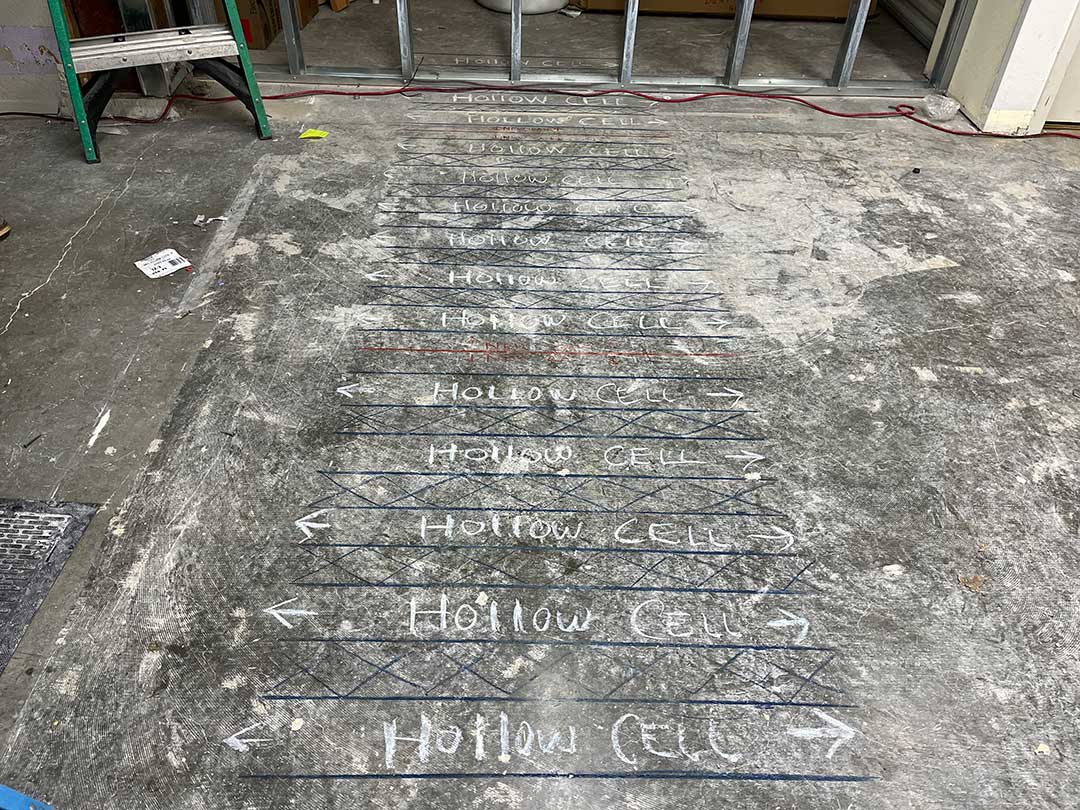 HOLLOW CELL
HOLLOW CELL
HOLLOW CELL
HOLLOW CELL
HOLLOW CELL
HOLLOW CELL
HOLLOW CELL
HOLLOW CELL
HOLLOW CELL
HOLLOW CELL
HOLLOW CELL
HOLLOW CELL
HOLLOW CELL